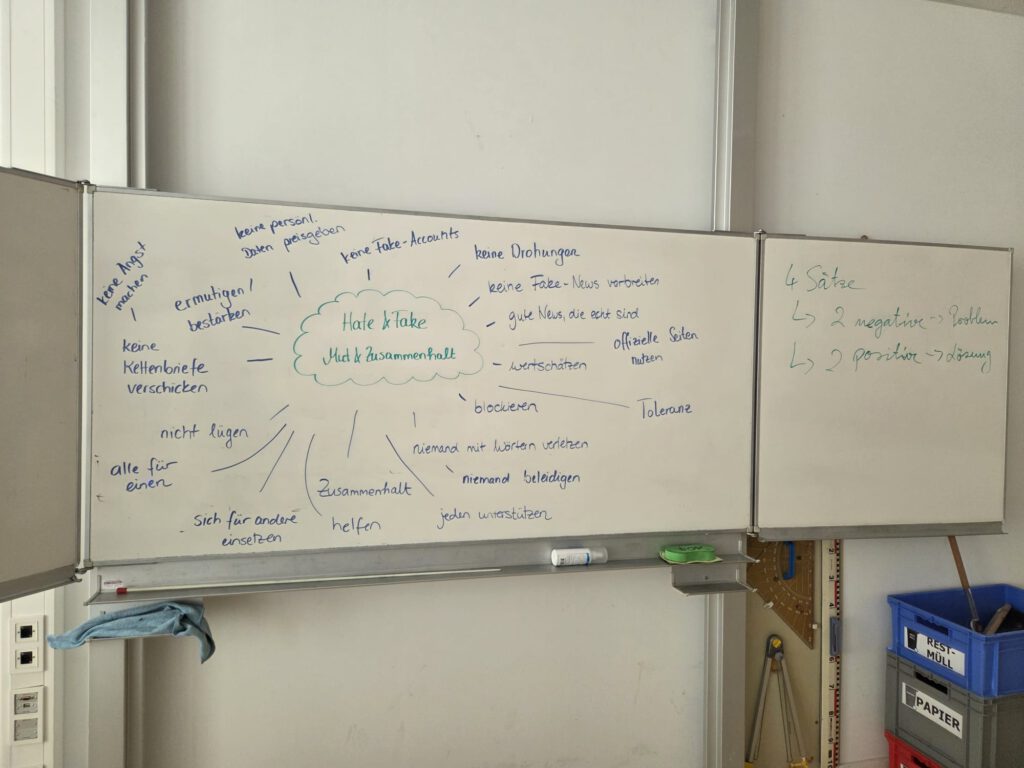 Hate & Fake
Mut & Zusammenhalt
keine Angst
machen
ermutigen/
bestärken
keine persönl.
Daten preisgeben
keine Fake-Accounts
keine Drohungen
keine Fake-News verbreiten
gute News, die echt sind
offizielle Seiten
nutzen
wertschätzen
Toleranz
blockieren
niemand mit Wörtern verletzen
niemand beleidigen
jeden unterstützen
Zusammenhalt
helfen
sich für andere
einsetzen
alle für
einen
nicht lügen
keine
Kettenbriefe
verschicken
4 Sätze
↳ 2 negative → Problem
↳ 2 positive → Lösung
REST-
MÜLL
PAPIER